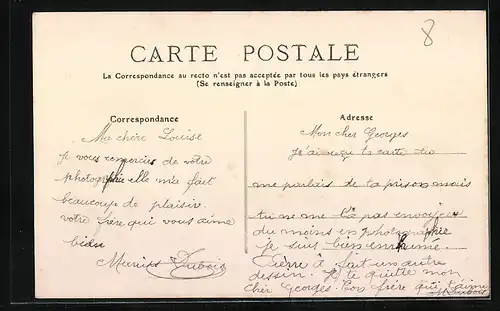 8
CARTE POSTALE
La Correspondance au recto n'est pas acceptée par tous les pays étrangers
(Se renseigner à la Poste)
Correspondance
Ma chère Louise
je vous remercies de votre
photographie elle m'a fait
beaucoup de plaisir.
votre frère qui vous aime
bien
Maurice Dubois
Adresse
Mon cher Georges
J'ai reçu ta carte tu
me parlais de ta prison mais
tu ne me l'a pas envoyée
du moins en photographie
je suis bien enrhumé.
Pierre à fait un autre
dessin. Je te quitte mon
cher Georges. Ton frère qui t'aime
M Dubois